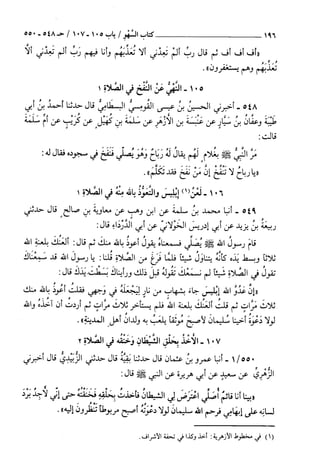 ١٩٦ كتاب السَّهْو / باب ١٠٥ - ١٠٧ / حـ ٥٤٨ - ٥٥٠
«أف أف أف ثم قال رب ألم تعدني ألا تُعذبَهُم وأنا فيهم رب ألم تعدني ألا
تُعذبَهُم وهم يستغفرون».
١٠٥ - النَّهْيُ عَنِ النَّفخِ في الصَّلاةِ ١
٥٤٨ - أخبرني الحسينُ بنُ عيسى القُومسيُّ البسطاميُّ قال حدثنا أحمدُ بنُ أبي
طَيْبَةَ وعفَّانُ بنُ سيَّارٍ عن عَنْبَسَةَ بنِ الأزهرِ عن سَلَمَةَ بنِ كُهَيْلٍ عن كُرَيْبٍ عن أمِّ سَلَمَةَ
قالت:
مَرَّ النبيُّ ﷺ بغلامٍ لهم يقالُ له رَبَاحٌ وهوَ يُصلِّي فنَفَخَ في سجودِه فقال له:
«يا رباحُ لا تنْفُخْ إنَّ مَنْ نَفَخَ فقد تكلَّم».
١٠٦ - لَعْنُ(١) إبْلِيسَ والتَّعوُّذُ باللهِ مِنْهُ في الصَّلاةِ ١
٥٤٩ - أنبا محمد بنُ سلمةَ عن ابنِ وهبٍ عن معاويةَ بنِ صالحٍ قال حدثني
ربيعةُ بنُ يزيد عن أبي إدريسَ الخَوْلانيِّ عن أبي الدَّرداءِ قال:
قامَ رسولُ الله ﷺ يُصلِّي فسمعناه يقولُ أعوذُ بالله منك ثم قال: ألعنُكَ بلعنةِ اللهِ
ثلاثاً وبسط يدَه كأنَّه يتناولُ شيئاً فلمَّا فرَغَ من الصَّلاةِ قلنا: يا رسولَ اللهِ قد سَمعناكَ
تقولُ في الصَّلاةِ شيئاً لم نسمعكَ تقولُه قبلَ ذلك ورأيناكَ بسطتَ يدَكَ قال:
«إنَّ عدُوَّ اللهِ إبليسَ جاءَ بشهابٍ من نارٍ ليجعلَهُ في وَجهي فقلتُ أعوذُ باللهِ منك
ثلاثَ مرَّاتٍ ثم قلتُ ألعنُكَ بلعنةِ اللهِ فلم يستأخر ثلاثَ مرَّاتٍ ثم أردتُ أن آخذَه واللهِ
لولا دعوةُ أخينا سُليمانَ لأصبحَ مُوثقاً يلعبُ به وِلدانُ أهلِ المدينةِ».
١٠٧ - الأخذُ بِحَلْقِ الشَّيْطَانِ وَخَنْقُه في الصَّلاةِ ٢
١/٥٥٠ - أنبا عمرو بنُ عثمان قال حدثنا بَقِيَّةُ قال حدثني الزُّبيديُّ قال أخبرني
الزُّهريُّ عن سعيدٍ عن أبي هريرةَ عن النبيِّ ﷺ قال:
«بينا أنا قائمٌ أصلِّي اعتَرَضَ لي الشيطانُ فأخذتُ بحَلْقِهِ فخنَقتُهُ حتى إنِّي لأجِدُ بَرْدَ
لسانِه على إبهامي فرحم الله سليمانَ لولا دعوَتُه أصبح مربوطاً تنظُرونَ إليه».
(١) في مخطوط الأزهرية: أخذ وكذا في تحفة الأشراف.